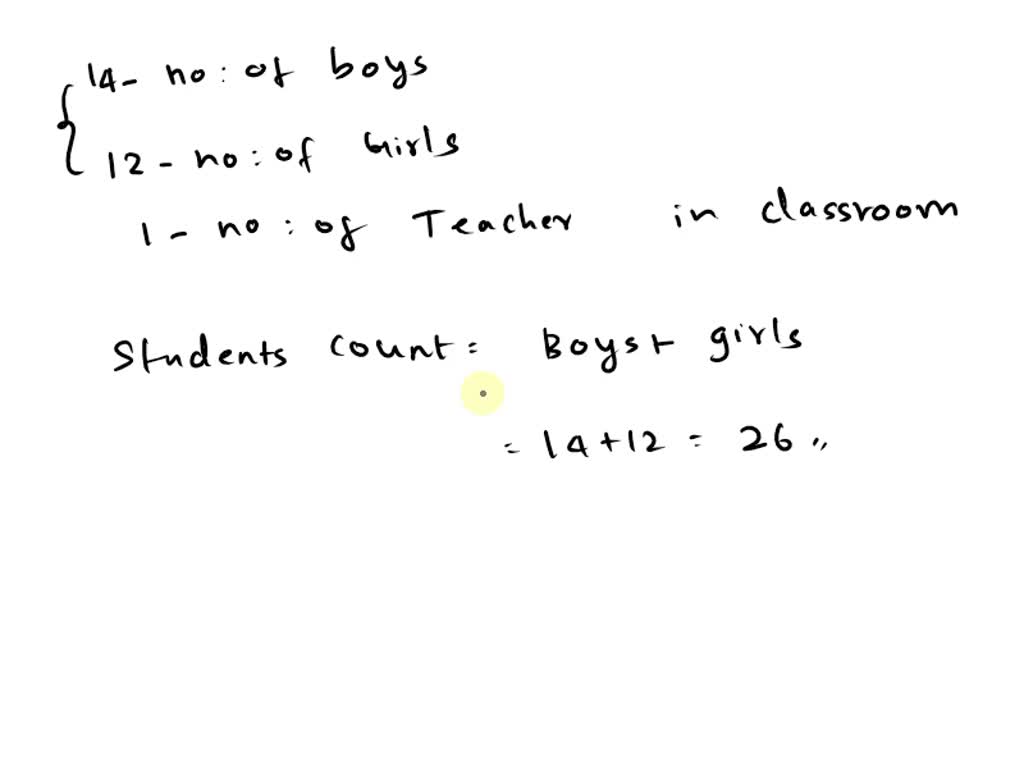 14 - no : of boys
12 - no : of Girls
1 - no : of Teacher in classroom
Students count = Boys + girls
= 14 + 12 = 26 ,,